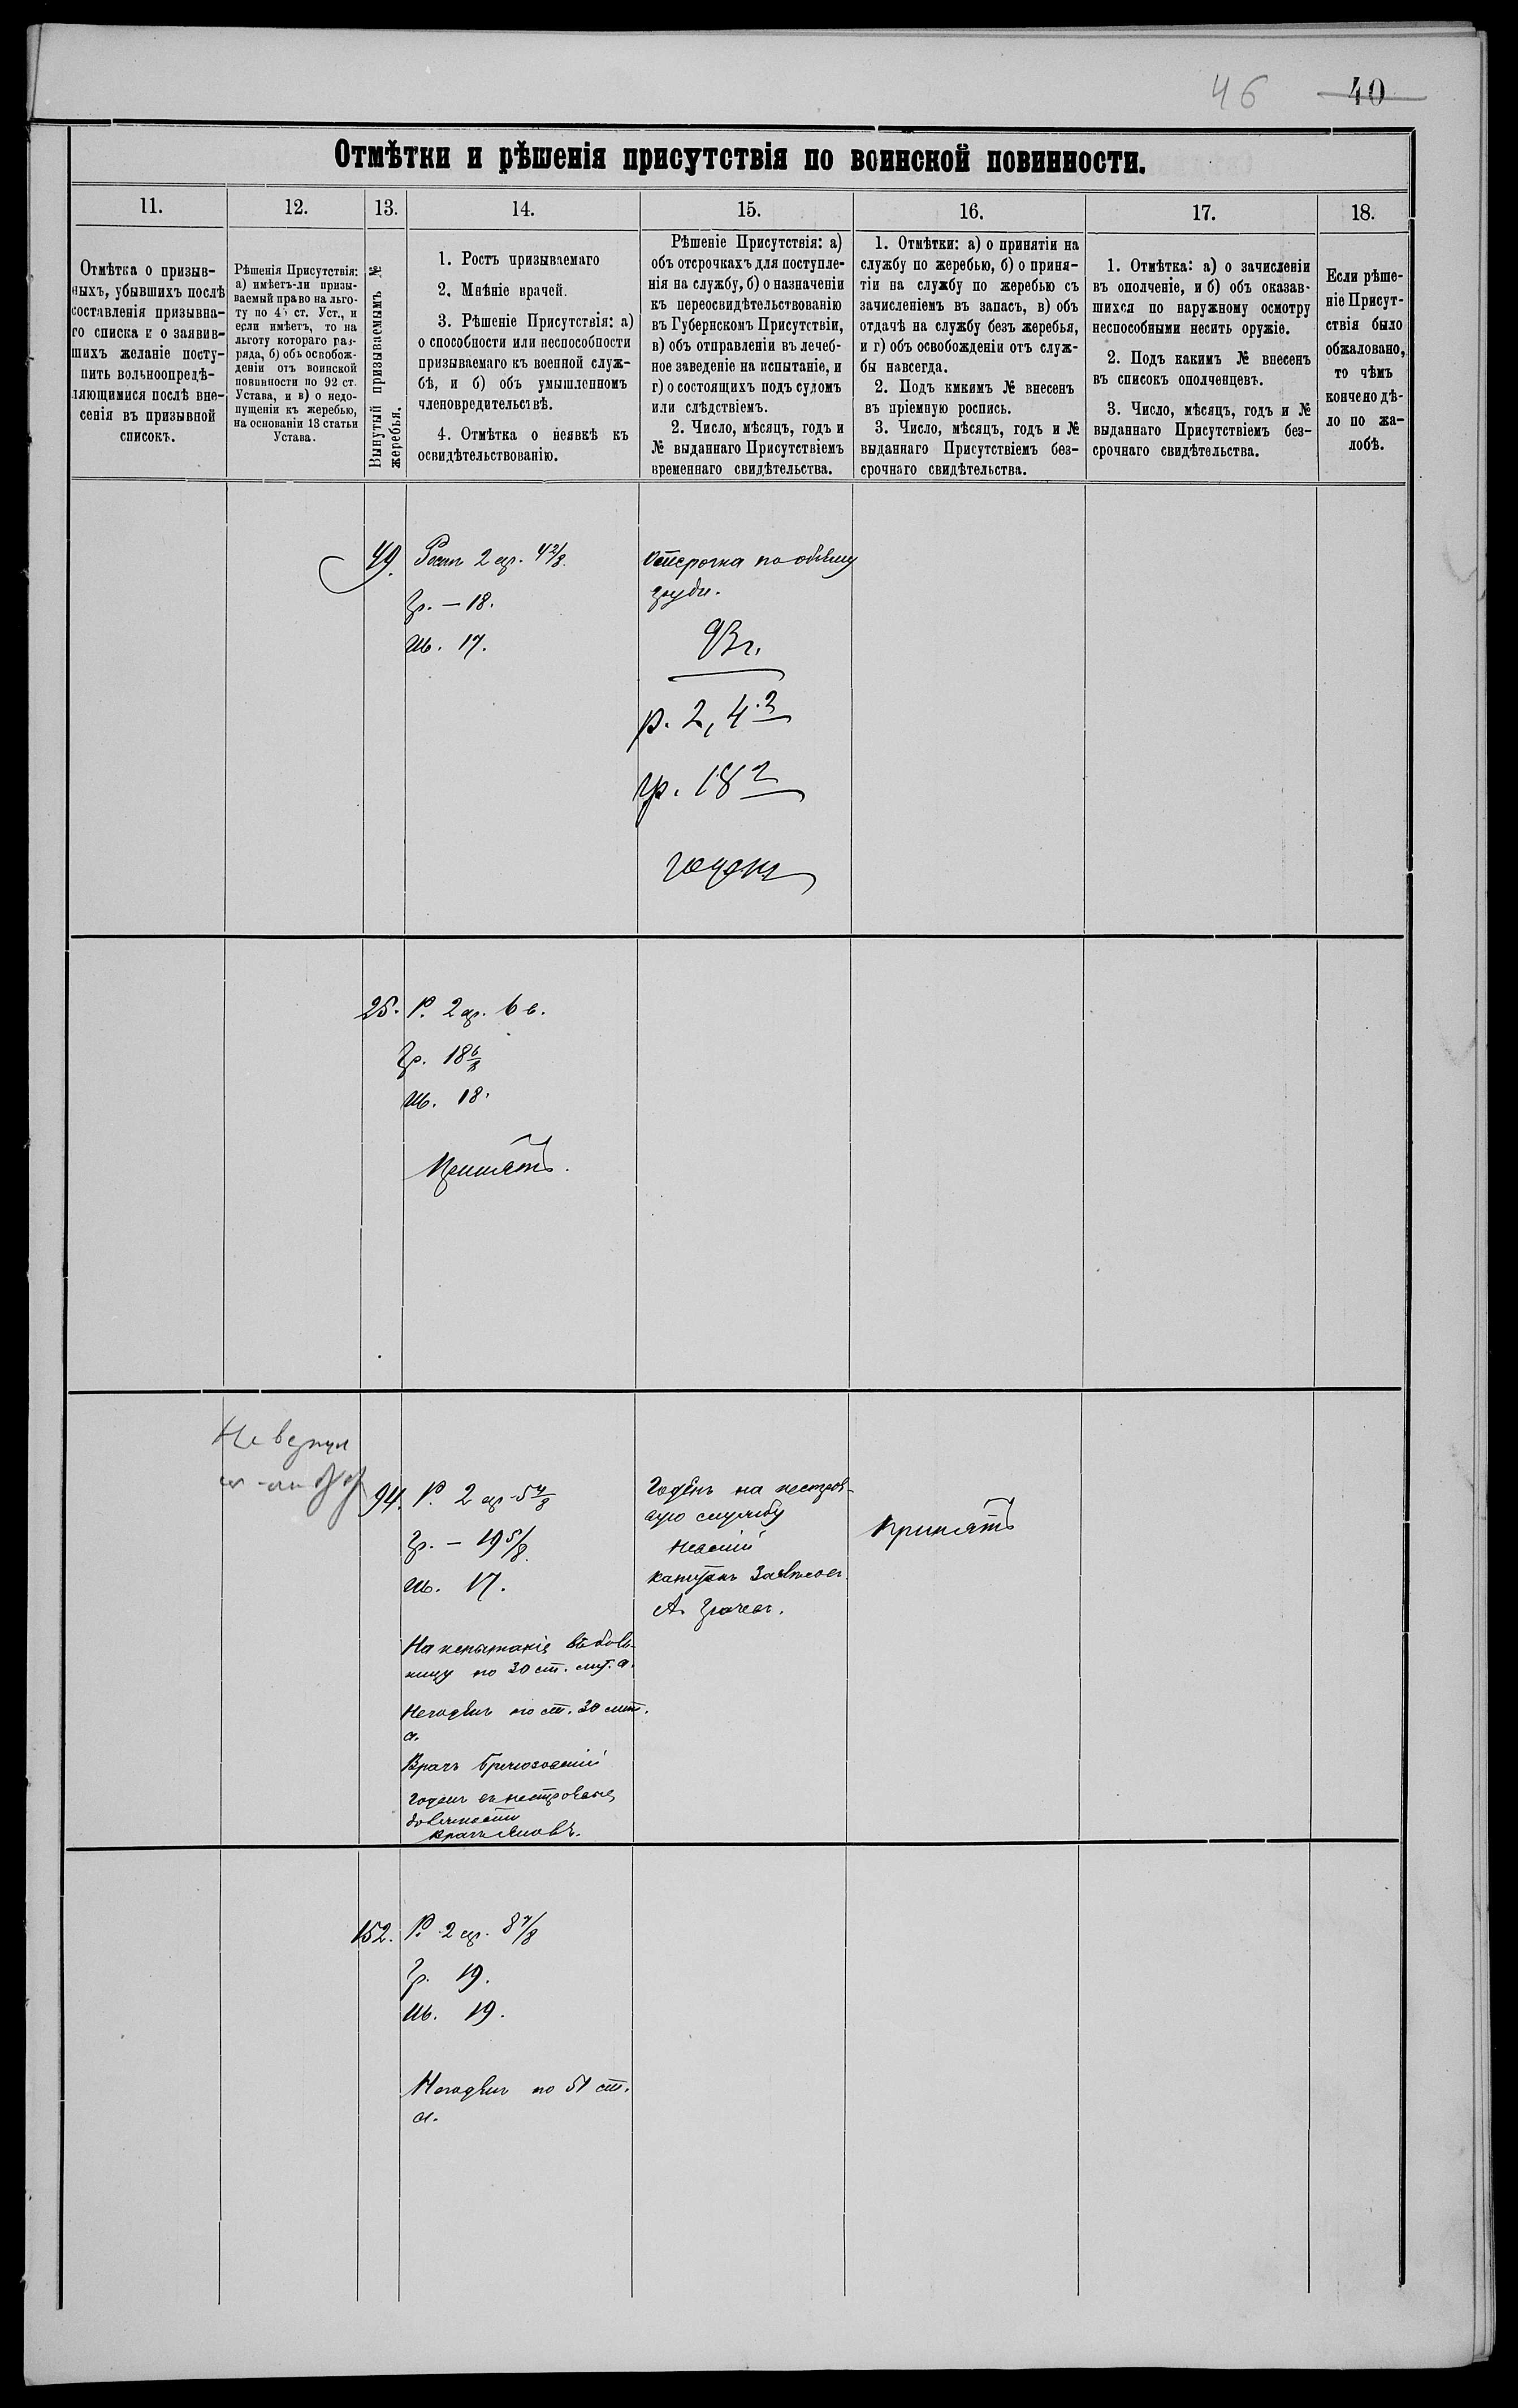 46 40
Отмѣтки и рѣшенія присутствія по воинской повинности.
11.
12.
13.
14.
15.
16.
17.
18.
Отмѣтка о призыв-
ныхъ, убывшихъ послѣ
составленія призывна-
го списка и о заявив-
шихъ желаніе посту-
пить вольноопредѣ-
ляющимися послѣ вне-
сенія въ призывной
списокъ.
Рѣшенія Присутствія:
а) имѣетъ-ли призы-
ваемый право на льго-
ту по 45 ст. Уст., и
если имѣетъ, то на
льготу котораго раз-
ряда, б) объ освобож-
деніи отъ воинской
повинности по 92 ст.
Устава, и в) о недо-
пущеніи къ жеребью,
на основаніи 13 статьи
Устава.
Вынутый призываемымъ №
жеребья.
1. Ростъ призываемаго
2. Мнѣніе врачей.
3. Рѣшеніе Присутствія: а)
о способности или неспособности
призываемаго къ военной служ-
бѣ, и б) объ умышленномъ
членовредительствѣ.
4. Отмѣтка о неявкѣ къ
освидѣтельствованію.
Рѣшеніе Присутствія: а)
объ отсрочкахъ для поступле-
нія на службу, б) о назначеніи
къ переосвидѣтельствованію
въ Губернскомъ Присутствіи,
в) объ отправленіи въ лечеб-
ное заведеніе на испытаніе, и
г) о состоящихъ подъ судомъ
или слѣдствіемъ.
2. Число, мѣсяцъ, годъ и
№ выданнаго Присутствіемъ
временнаго свидѣтельства.
1. Отмѣтки: а) о принятіи на
службу по жеребью, б) о приня-
тіи на службу по жеребью съ
зачисленіемъ въ запасъ, в) объ
отдачѣ на службу безъ жеребья,
и г) объ освобожденіи отъ служ-
бы навсегда.
2. Подъ кмкимъ № внесенъ
въ пріемную роспись.
3. Число, мѣсяцъ, годъ и №
выданнаго Присутствіемъ без-
срочнаго свидѣтельства.
1. Отмѣтка: а) о зачисленіи
въ ополченіе, и б) объ оказав-
шихся по наружному осмотру
неспособными несить оружіе.
2. Подъ какимъ № внесенъ
въ списокъ ополченцевъ.
3. Число, мѣсяцъ, годъ и №
выданнаго Присутствіемъ без-
срочнаго свидѣтельства.
Если рѣше-
ніе Присут-
ствія было
обжаловано,
то чѣмъ
кончено дѣ-
ло по жа-
лобѣ.
49. Ростъ 2 ар. 4 2/8.
Гр. — 18.
Ш. 17.
Отсрочка по объему
груди.
93 г.
р. 2, 4.2
гр. 18 2
годенъ
25. Р. 2 ар. 6 в.
Гр. 18 6/8
Ш. 18.
Принятъ.
94. Р. 2 ар. 5 4/8
Гр. — 19 5/8.
Ш. 17.
На испытаніе въ боль-
ницу по 30 ст. лит. а.
Негоденъ по ст. 30 лит.
а.
Врачъ
Годенъ къ нестроевой
должности
Врачъ
Годенъ на нестроев-
ую службу
капитанъ
А. Грачевъ.
Принятъ
Не вернул
152. Р. 2 ар. 8 7/8
Гр. 19.
Ш. 19.
Негоденъ по 51 ст.
а.